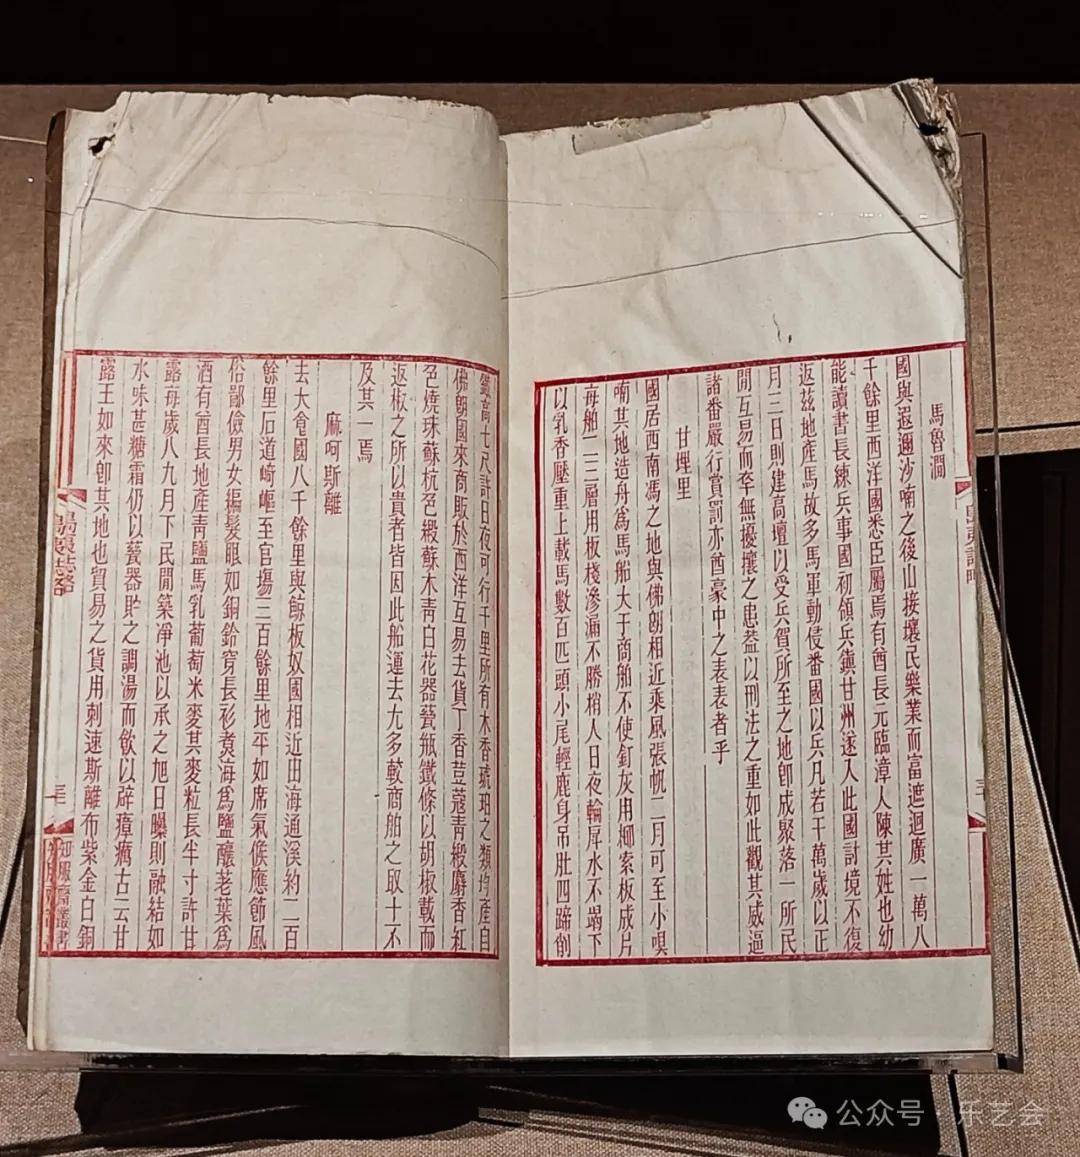 馬魯澗
國與遐邇沙喃之後山接壤民樂業而富遮迴廣一萬八
千餘里西洋國悉臣屬焉有酋長元臨漳人陳其姓也幼
能讀書長練兵事國初領兵鎮甘州遂入此國討境不復
返茲地產馬故多馬軍動侵番國以兵凡若干萬歲以正
月三日則建高壇以受兵賀所至之地卽成聚落一所民
間互易而卒無擾攘之患葢以刑法之重如此觀其威逼
諸番嚴行賞罰亦酋豪中之表表者乎
甘埋里
國居西南馮之地與佛朗相近乘風張帆二月可至小唄
喃其地造舟爲馬船大于商舶不使釘灰用椰索板成片
每舶二三層用板棧滲漏不勝梢人日夜輪戽水不竭下
以乳香壓重上載馬數百匹頭小尾輕鹿身吊肚四蹄削
鐵高七尺許日夜可行千里所有木香琥珀之類均產自
佛朗國來商販於西洋互易去貨丁香荳蔻青緞麝香紅
色燒珠蘇杭色緞蘇木青白花器瓷瓶鐵條以胡椒載而
返椒之所以貴者皆因此船運去尢多較商舶之取十不
及其一焉
麻呵斯離
去大食國八千餘里與鯨板奴國相近由海通溪約二百
餘里石道崎嶇至官塲三百餘里地平如席氣候應節風
俗鄙儉男女編髮眼如銅鈴穿長衫煑海爲鹽釀荖葉爲
酒有酋長地產青鹽馬乳葡萄米麥其麥粒長半寸許甘
露每歲八九月下民間築淨池以承之旭日曝則融結如
水味甚糖霜仍以瓷器貯之調湯而飲以辟瘴癘古云甘
露王如來卽其地也貿易之貨用刺速斯離布紫金白銅
島夷志略
三十
知服齋叢書
島夷志略
公众号·乐艺会